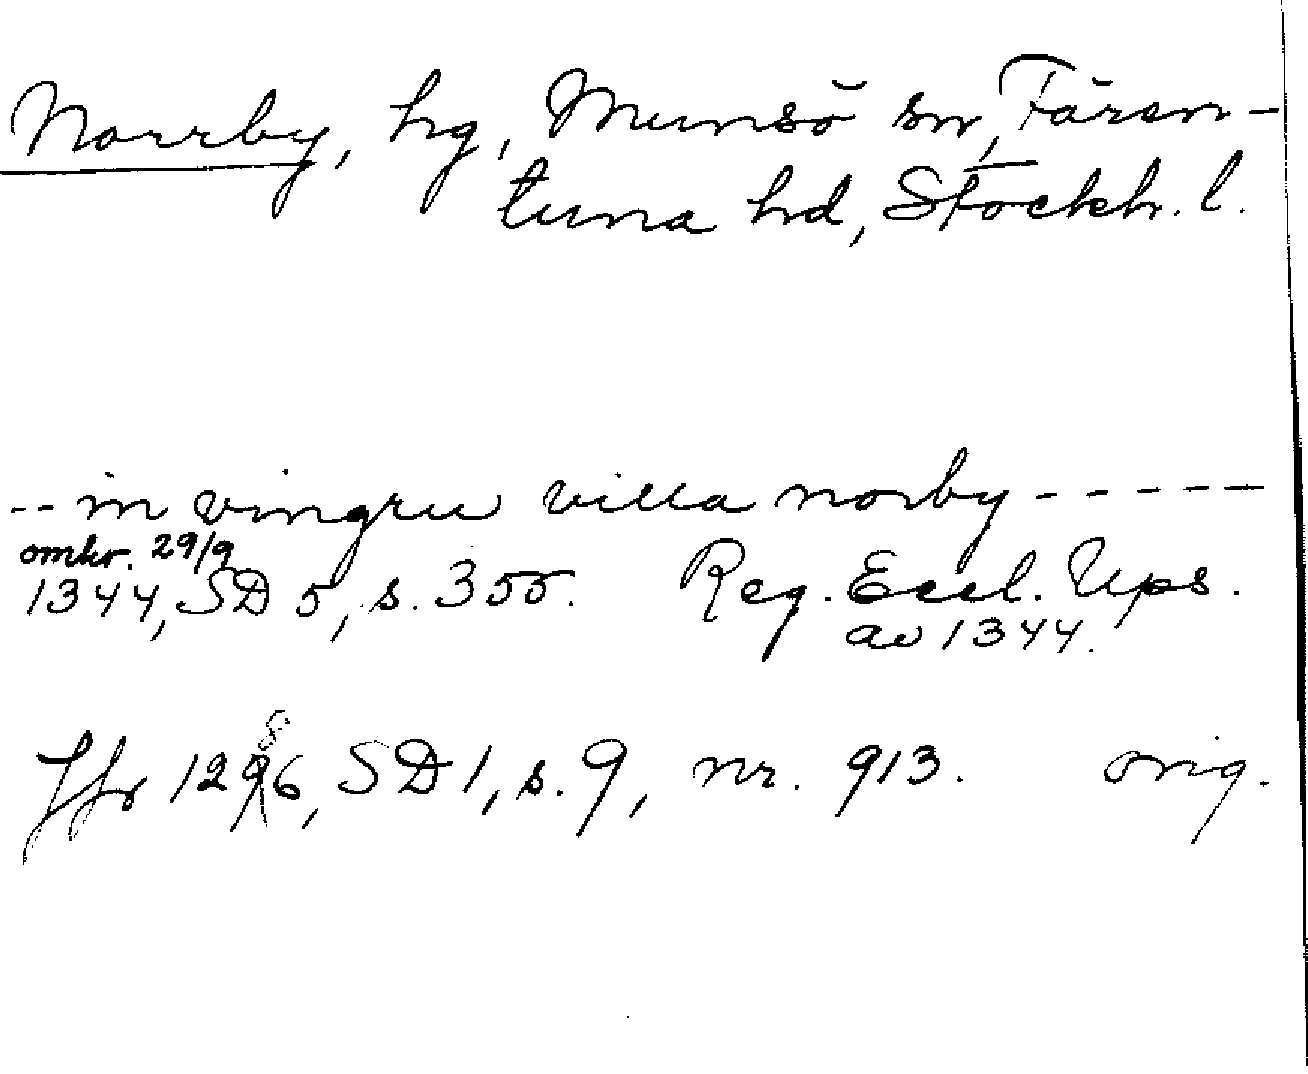 Norrby, hg, Munsö sn, Fären-
tuna hd, Stockh. l.
-- in vingru villa norby -----
omkr. 29/9
1344, SD 5, s. 355. Reg. Eccl. Ups.
av 1344.
Jfr 1286, SD 1, s. 9, nr. 913. orig.